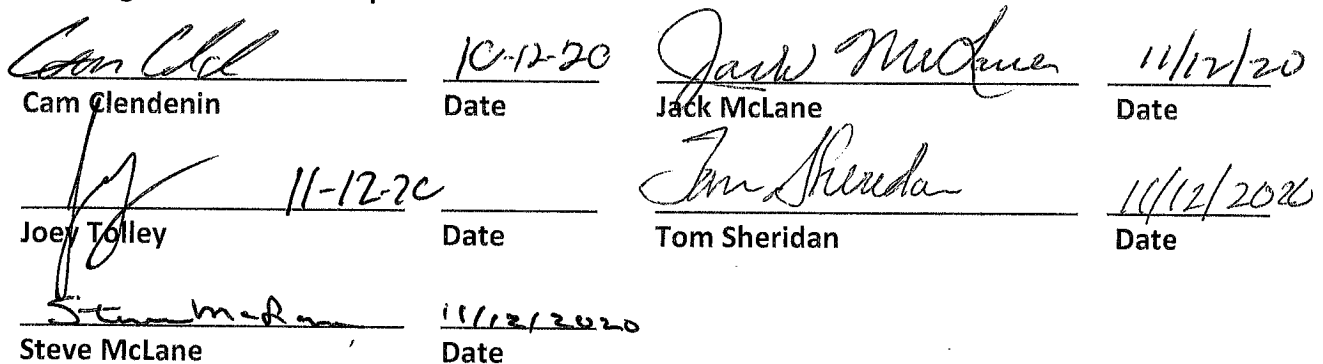 Cam Clendenin 10-12-20 Jack McLane 11/12/20
Cam Clendenin Date Jack McLane Date
11-12-20 Tom Sheridan 11/12/2020
Joey Tolley Date Tom Sheridan Date
Steve McLane 11/12/2020
Steve McLane Date